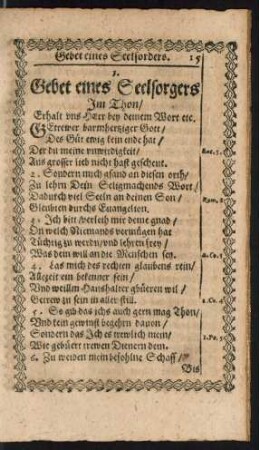 Gebet eines Seelsorders. 15
1.
Gebet eines Seelsorgers
Im Thon/
Erhalt vns Herr bey deinem Wort etc.
Getrewer barmhertziger Gott/
Des Güt ewig kein ende hat/
Der du meine vnwirdigkeit/
Aus grosser lieb nicht hast gescheut.
2. Sondern mich gsand an diesen orth/
Zu lehrn Dein Seligmachends Wort/
Dadurch viel Seeln an deinen Son/
Gleubten durchs Euangelion.
3. Ich bitt/verleih mir deine gnad/
On welch Niemands vermügen hat
Tüchtig zu werdn/vnd lehren frey/
Was dein will an die Menschen sey.
4. Las mich des rechten glaubens rein/
Allzeit ein bekenner sein/
Vnd weilln Haushalter gbüren wil/
Getrew zu sein in aller still.
5. So gib das ichs auch gern mag Thon/
Vnd kein gewinst begehrn davon/
Sondern das Ich es trewlich mein/
Wie gebürt trewen Dienern dein.
6. Zu weiden mein befohlne Schaff/
Bis